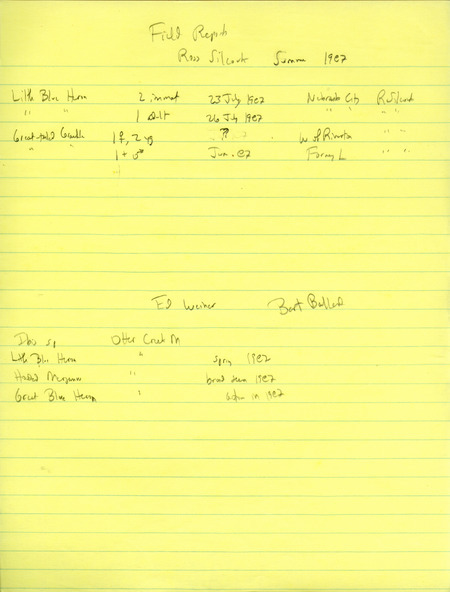 Field Reports
Ross Silcock Summer 1987
Little Blue Heron 2 immat 23 July 1987 Nebraska City R Silcock
" " 1 adult 26 July 1987 " " " "
Great-tailed Grackle 1♀, 2 yg ? W of Riverton
" " 1+ ♂ Jun. 87 Funny L " "
Ed Weiner Bart Ballard
Ibis sp Otter Creek M
Little Blue Heron " spring 1987
Hooded Merganser " brood seen 1987
Great Blue Heron " in 1987